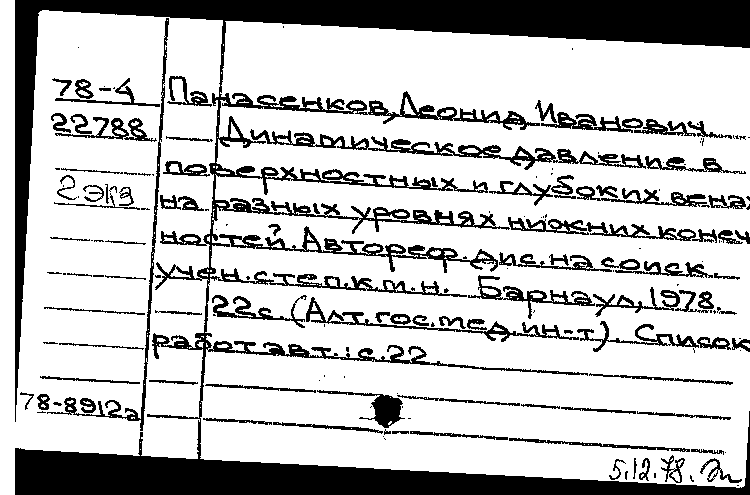 78-4 Панасенков, Леонид Иванович.
22788 Динамическое давление в
поверхностных и глубоких венах
2 экз на разных уровнях нижних конеч
ностей. Автореф. дис. на соиск.
учен. степ. к.м.н. Барнаул, 1978.
22 с. (Алт. гос. мед. ин-т). Список
работ авт.: с. 22.
78-8912а
5.12.78.